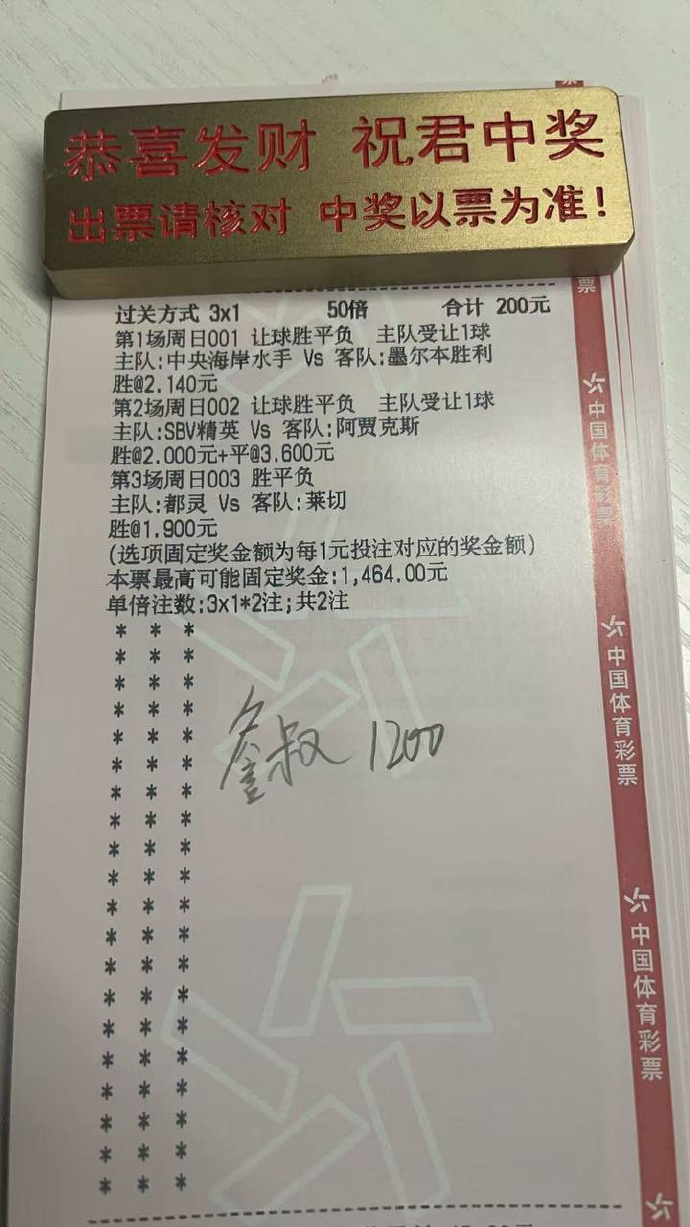 恭喜发财 祝君中奖
出票请核对 中奖以票为准!
过关方式 3x1 50倍 合计 200元
第1场周日001 让球胜平负 主队受让1球
主队:中央海岸水手 Vs 客队:墨尔本胜利
胜@2.140元
第2场周日002 让球胜平负 主队受让1球
主队:SBV精英 Vs 客队:阿贾克斯
胜@2.000元+平@3.600元
第3场周日003 胜平负
主队:都灵 Vs 客队:莱切
胜@1.900元
(选项固定奖金额为每1元投注对应的奖金额)
本票最高可能固定奖金:1,464.00元
单倍注数:3x1*2注;共2注
* * *
* * *
* * *
* * *
* * *
* * *
* * *
* * *
* * *
* * *
* * *
* * *
* * *
* * *
* * *
* * *
* * *
* * *
* * *
* * *
叔 1200
票
中国体育彩票
中国体育彩票
中国体育彩票